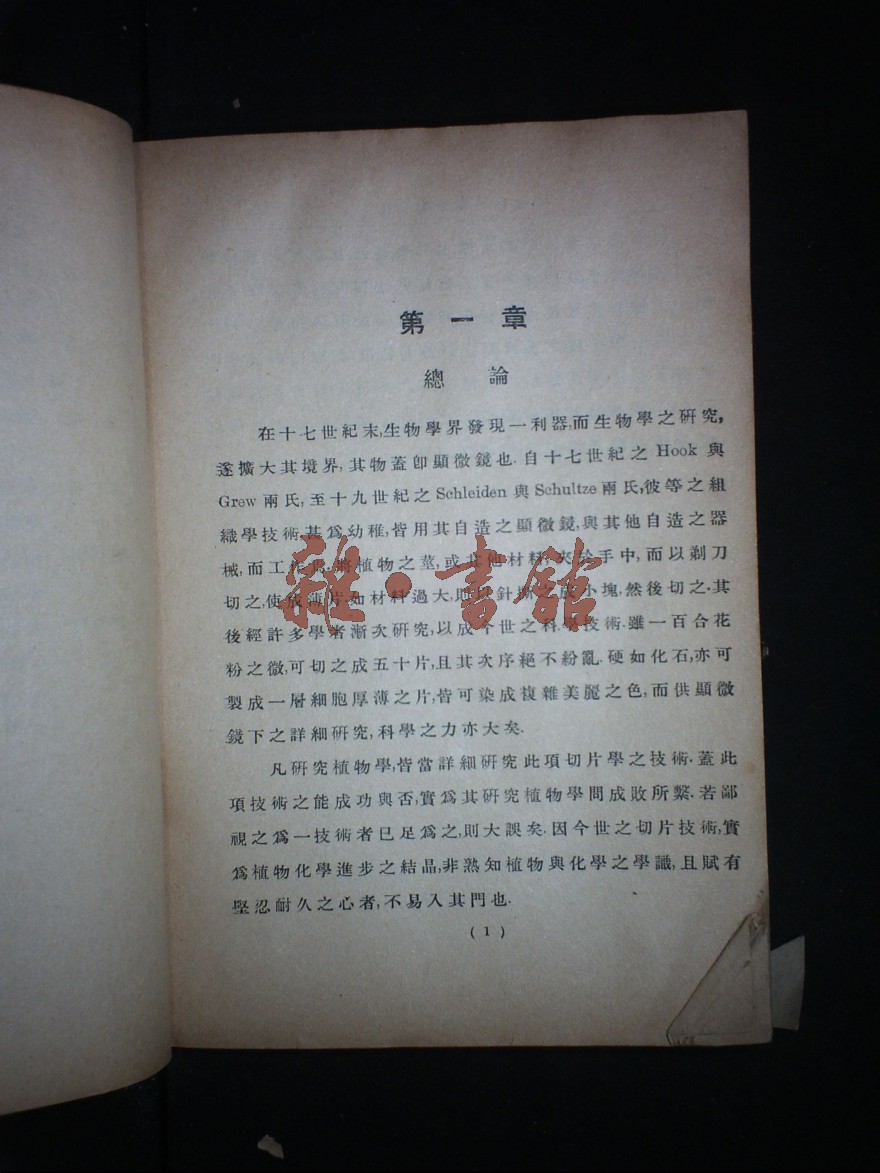 第一章
總論
在十七世紀末,生物學界發現一利器,而生物學之研究,
遂擴大其境界,其物蓋卽顯微鏡也.自十七世紀之 Hook 與
Grew 兩氏,至十九世紀之 Schleiden 與 Schultze 兩氏,彼等之組
織學技術,甚爲幼稚,皆用其自造之顯微鏡,與其他自造之器
械,而工作焉.將植物之莖,或其他材料,夾於手中,而以剃刀
切之,使成薄片.如材料過大,則以針撕之成小塊,然後切之.其
後經許多學者漸次研究,以成今世之科學技術.雖一百合花
粉之微,可切之成五十片,且其次序絕不紛亂.硬如化石,亦可
製成一層細胞厚薄之片,皆可染成複雜美麗之色,而供顯微
鏡下之詳細研究,科學之力亦大矣.
凡研究植物學,皆當詳細研究此項切片學之技術.蓋此
項技術之能成功與否,實爲其研究植物學間成敗所繫.若鄙
視之爲一技術者已足爲之,則大誤矣.因今世之切片技術,實
爲植物化學進步之結晶,非熟知植物與化學之學識,且賦有
堅忍耐久之心者,不易入其門也.
(1)
雜·書館